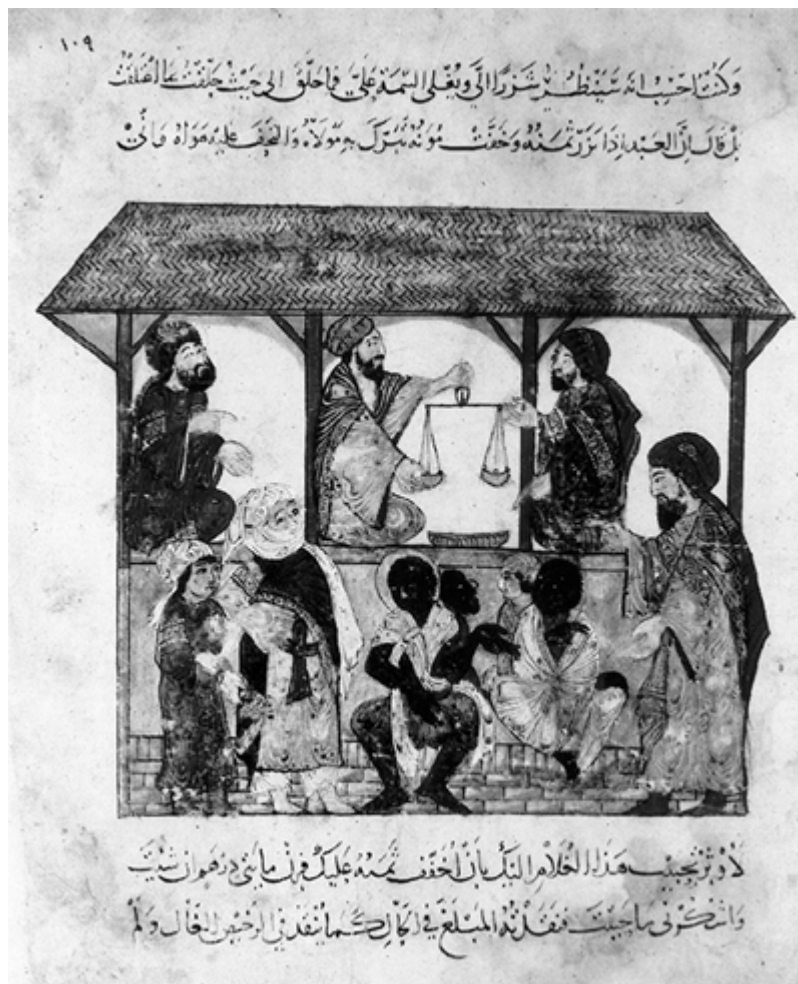 ١٠٩
وكنت احسب انه سينظر شزرا الي ويغلي السيمة علي فما حلق الى حيث حلقت ولا اعتلقت
بل قال ان العبد اذا نزر ثمنه وخفت مؤنه تبرك به مولاه والتحف عليه هواه واني
لاوثر تحبيب هذا الغلام اليك بان اخفف ثمنه عليك فزن مايتي درهم ان شيت
واشكر لي ما حييت فنقدته المبلغ في الحال كما ينقد في الرخيص الحلال ولم